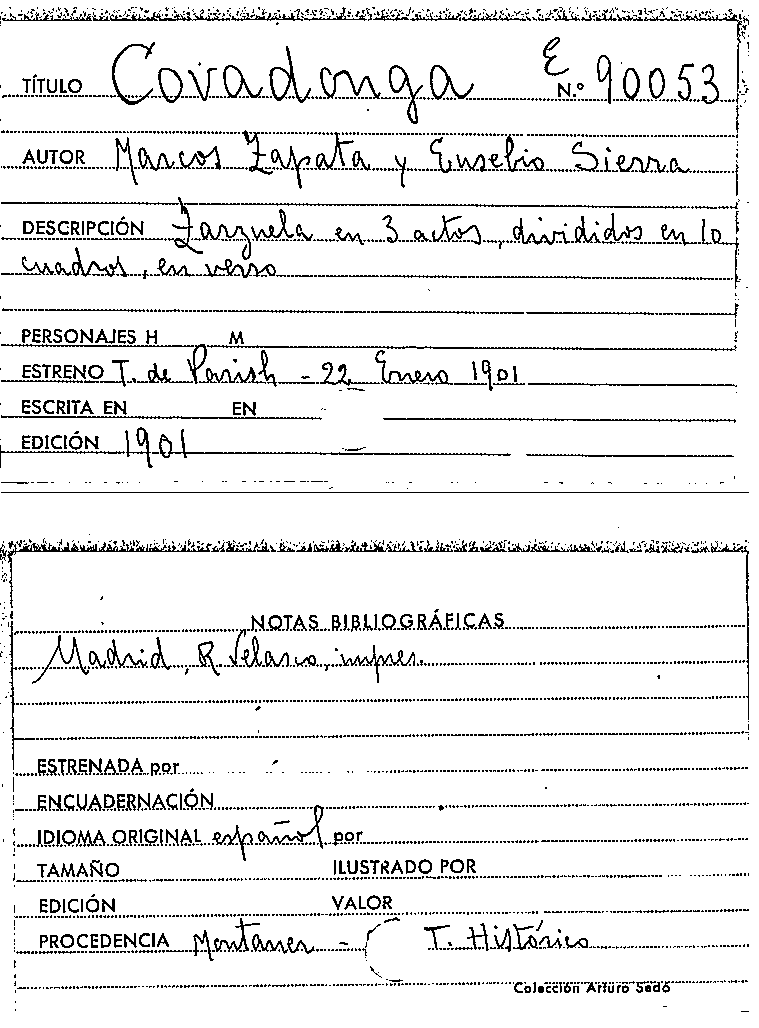 TÍTULO Covadonga E N.º 90053
AUTOR Marcos Zapata y Eusebio Sierra
DESCRIPCIÓN Zarzuela en 3 actos, divididos en 10
cuadros, en verso
PERSONAJES H M
ESTRENO T. de Parish - 22 Enero 1901
ESCRITA EN EN
EDICIÓN 1901
NOTAS BIBLIOGRÁFICAS
Madrid, R. Velasco, impres.
ESTRENADA por
ENCUADERNACIÓN
IDIOMA ORIGINAL español por
TAMAÑO ILUSTRADO POR
EDICIÓN VALOR
PROCEDENCIA Montaner - ( T. Histórico
Colección Arturo Sedó